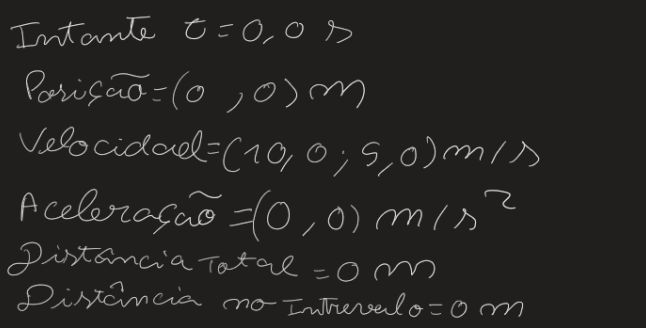 Intante t=0,0 s
Posição=(0 , 0) m
Velocidade=(10,0 ; 5,0) m/s
Aceleração=(0 , 0) m/s²
Distância Total = 0 m
Distância no Intrevalo=0 m